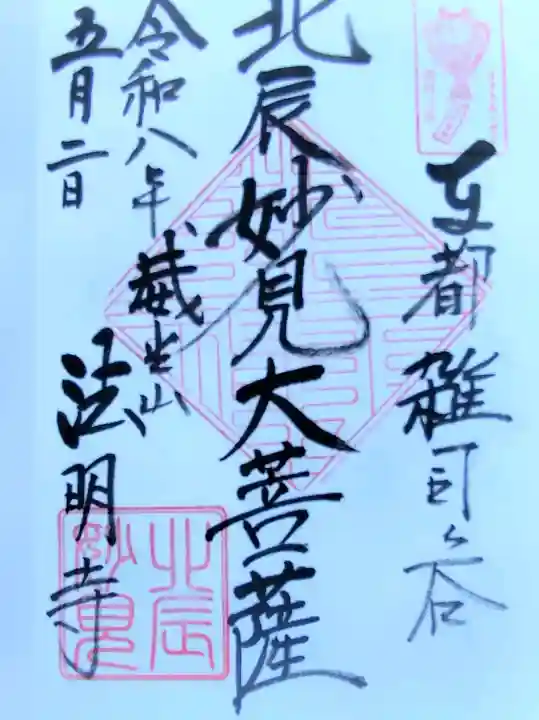 東都雑司ヶ谷
北辰妙見大菩薩
威光山
法明寺
令和八年
五月二日
北辰
妙見